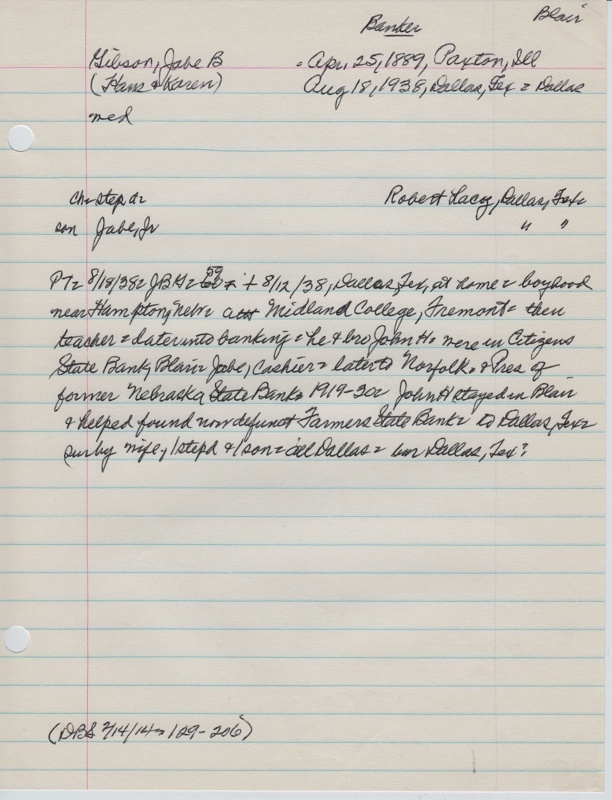 Blair
Banker
Gibson, Jabe B = Apr, 25, 1889, Paxton, Ill
(Hans & Karen) Aug 18, 1938, Dallas, Tex = Dallas
med
ch = step d = Robert Lacey, Dallas, Tex =
son Jabe, Jr " "
PT = 8/18/38 = JBG = 59 = + 8/12/38, Dallas, Tex, at home = boyhood
near Hampton, Nebr = att Midland College, Fremont = then
teacher = later into banking = he & bro John H. were in Citizens
State Bank, Blair = Jabe, Cashier = later to Norfolk. & Pres of
former Nebraska State Bank = 1919-30 = John H stayed in Blair
& helped found now defunct Farmers State Bank = to Dallas, Tex =
sur by wife, 1 step d & 1 son = all Dallas = bur Dallas, Tex?
(DBS 2/14/14 = 129-206)